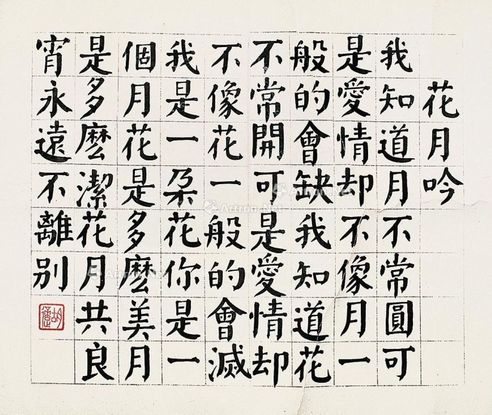 花月吟
我知道月不常圓可
是愛情却不像月一
般的會缺我知道花
不常開可是愛情却
不像花一般的會滅
我是一朵花你是一
個月花是多麼美月
是多麼潔花月共良
宵永遠不離別